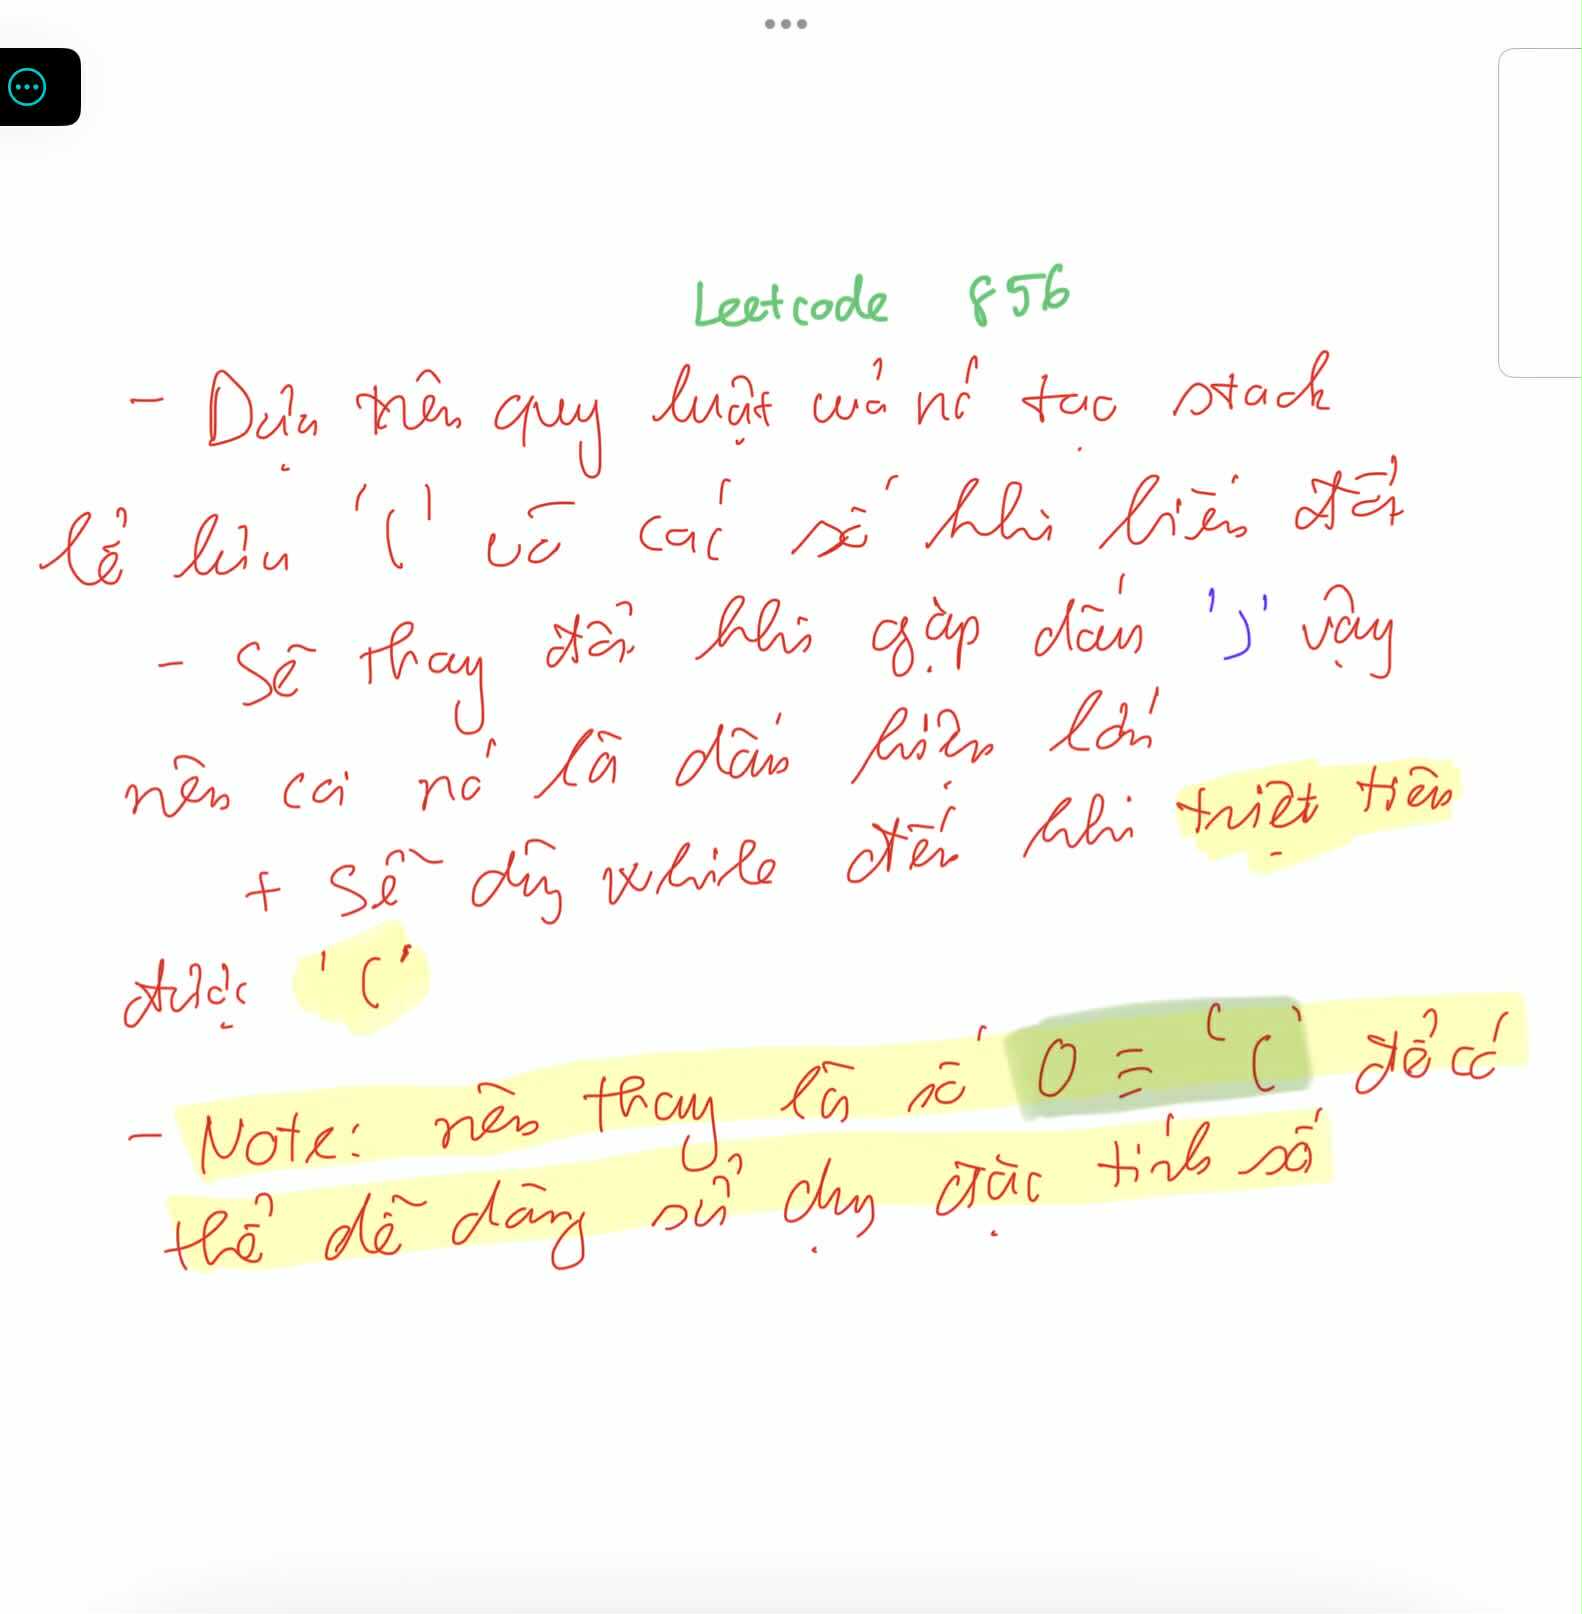 Leetcode 856
- Dựa trên quy luật của nó tạo stack
để lưu '(' và các số khi biến đổi
- Sẽ thay đổi khi gặp dấu ')' vậy
nên coi nó là dấu hiệu lớn
+ Sẽ dùng while đến khi triệt tiêu
được '('
- Note: nên thay là số 0 ≡ '(' để có
thể dễ dàng sử dụng đặc tính số